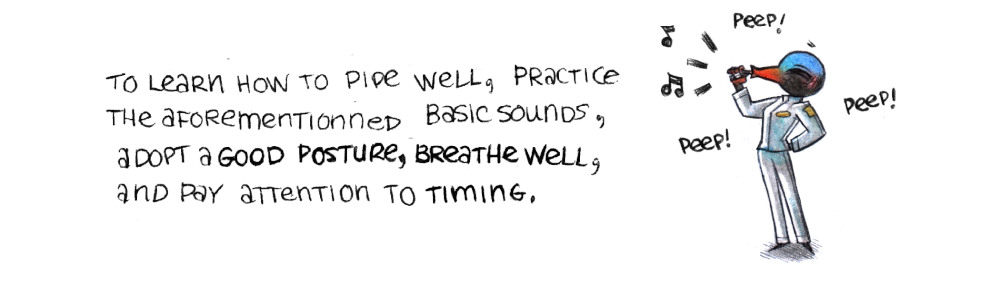 Peep!
TO Learn HOW TO PIPE WELL, PRACTICE
THE aFOREMENTIONNED BASIC SOUNDS,
aDOPT a GOOD POSTURE, BREATHE WELL,
anD Pay aTTENTION TO TIMING.
Peep!
Peep!